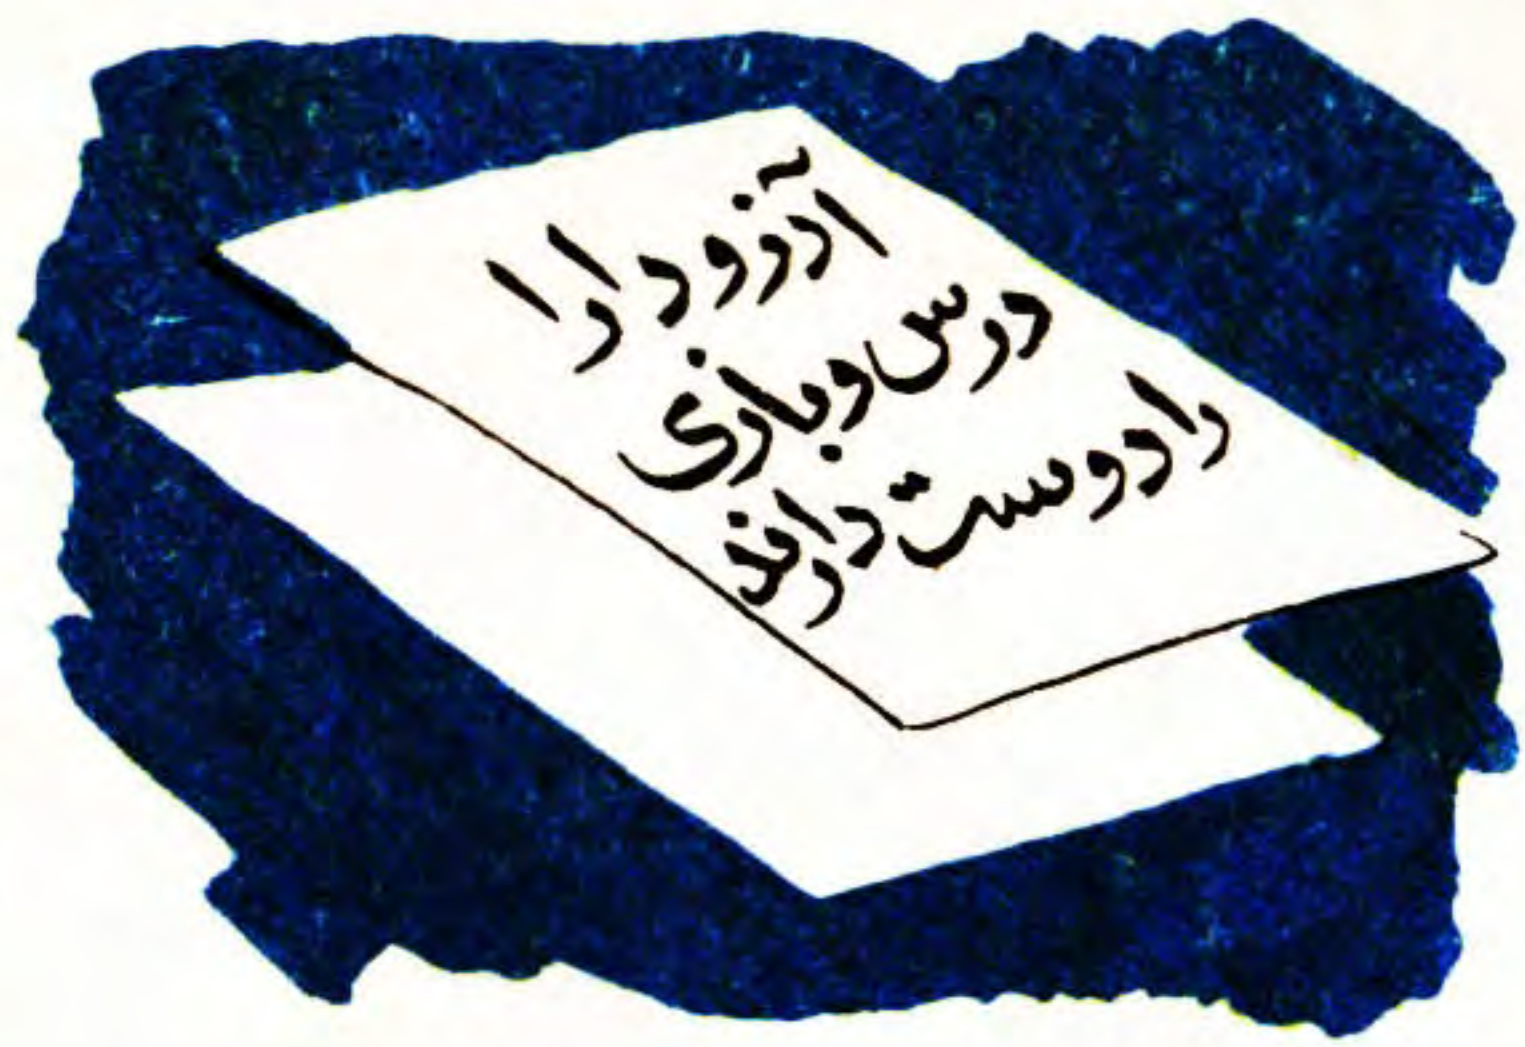 آذر و دارا
درس و بازی
را دوست دارند